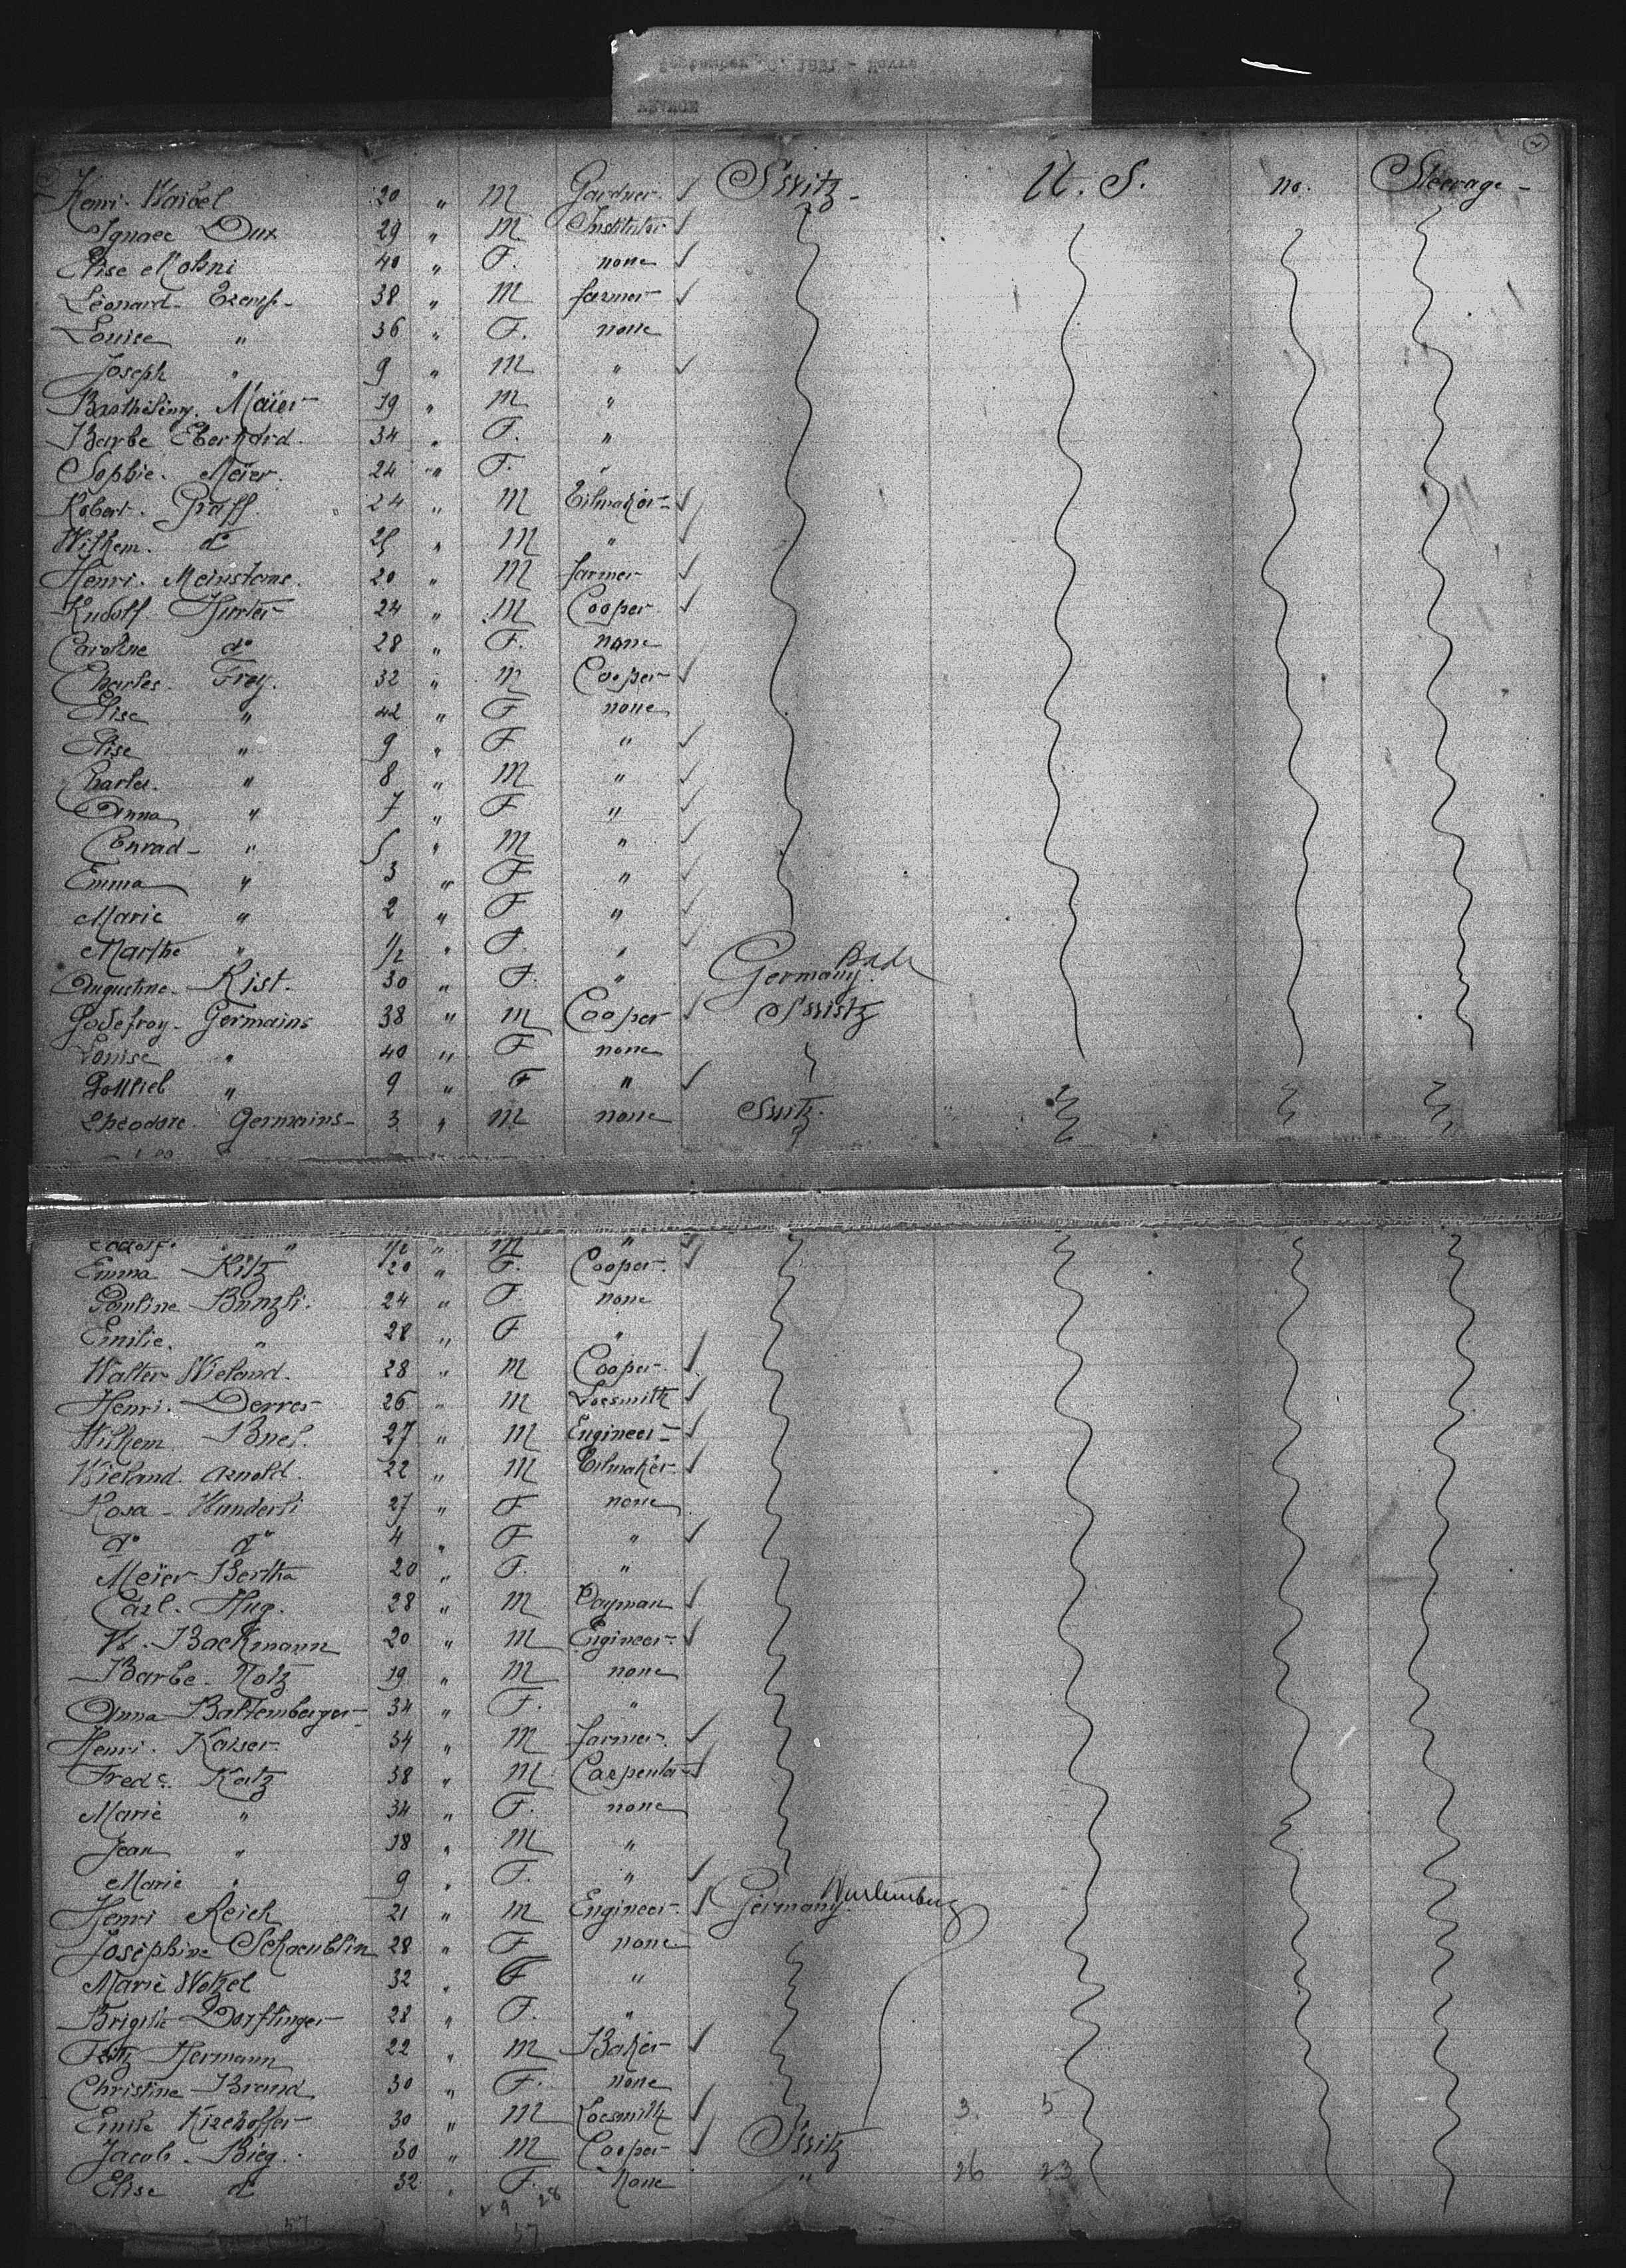 September 1881 - Havre
2
Henri Waibel 20 " M Gardner Switz U. S. no. Steerage
Ignace Dux 29 " M
Elise 40 " F. none
Léonard 38 " M farmer
Louise " 36 " F. none
Joseph " 9 " M "
Barthélémy Maïer 19 " M "
Barbe Eberhard 34 " F. "
Sophie Meïer 24 " F. "
Robert Graff 24 " M
Wilhem do 25 " M "
Henri 20 " M farmer
Rudolf Hurter 24 " M Cooper
Caroline do 28 " F. none
Charles Frey 32 " M Cooper
Elise " 42 " F none
Elise " 9 " F "
Charles " 8 " M "
Anna " 7 " F "
Conrad " 5 " M "
Emma " 3 " F "
Marie " 2 " F "
Marthe " 1/2 " F. "
Augustine Kist. 30 " F. " Germany Bade
Godefroy Germains 38 " M Cooper Swistz
Louise " 40 " F none
Gottlieb " 9 " F "
Theodore Germains 3 " M none Switz.
" 1/2 " M "
Emma 20 " F. Cooper
Pauline Bunzli 24 " F. none
Emilie " 28 " F "
Walter Wieland 28 " M Cooper
Henri Derrer 26 " M Locsmith
Wilhem 27 " M Engineer
Wieland Arnold 22 " M
Rosa Wunderli 27 " F none
do do 4 " F "
Meïer Bertha 20 " F. "
Carl Hug. 28 " M Dayman
W. Backmann 20 " M Engineer
Barbe Notz 19 " M none
Anna Baltemberger 34 " F. "
Henri Kaiser 34 " M farmer
Fredc Katz 38 " M Carpenter
Marie " 34 " F. none
Jean " 18 " M "
Marie " 9 " F. "
Henri Reich 21 " M Engineer Germany Wurtemberg
Joséphine Schaeublin 28 " F none
Marie Wetzel 32 " F "
Brigitte Dorflinger 28 " F. "
Fritz Hermann 22 " M Baker
Christine Brand 30 " F. none
Emile Kirchoffer 30 " M Locsmith 3 5
Jacob Bieg 30 " M Cooper Switz
Elise do 32 " F. none " 26 23
29 28
57 57